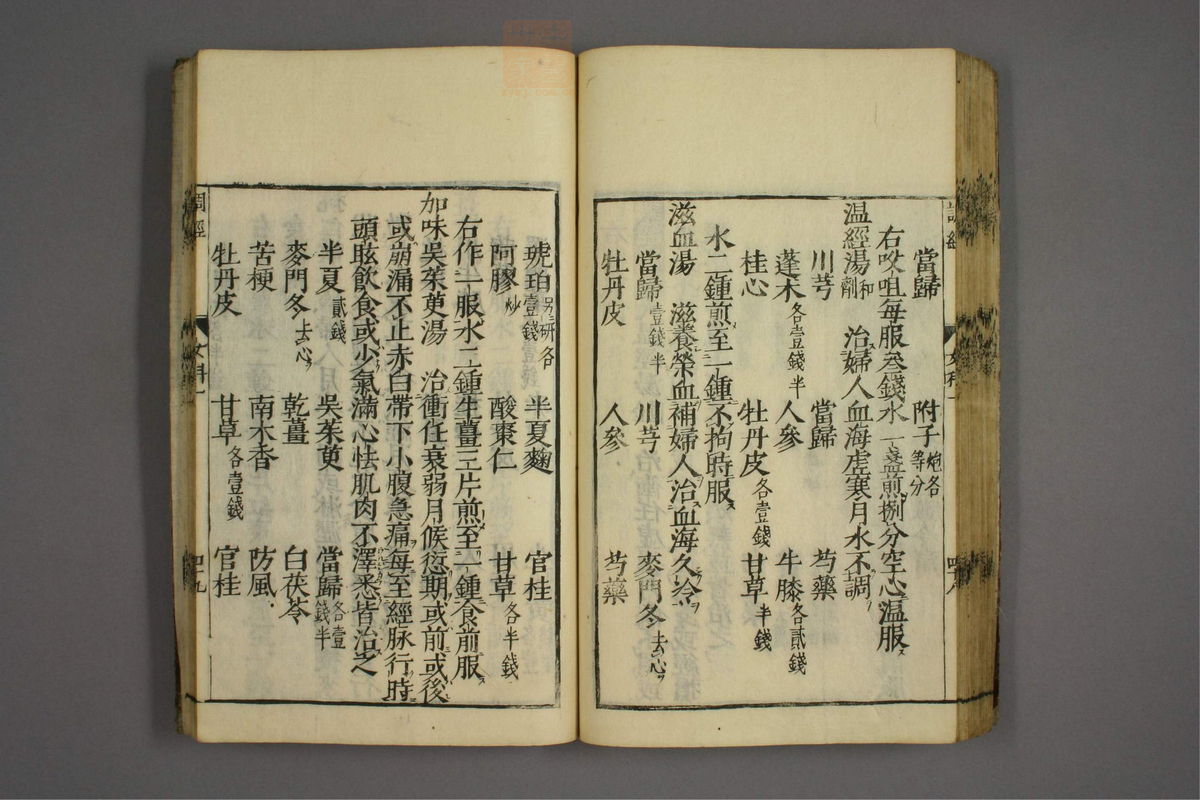 當歸 附子炮各等分
右㕮咀每服叁錢水一盞煎捌分空心温服
温經湯和劑 治婦人血海虚寒月水不調
川芎 當歸 芍藥
蓬朮各壹錢半 人參 牛膝各貳錢
桂心 牡丹皮各壹錢 甘草半錢
水二鍾煎至一鍾不拘時服
滋血湯 滋養榮血補婦人治血海久冷
當歸壹錢半 川芎 麥門冬去心
牡丹皮 人參 芍藥
琥珀另研各壹錢 半夏麴 官桂
阿膠炒 酸棗仁 甘草各半錢
右作一服水二鍾生薑三片煎至一鍾食前服
加味吳茱萸湯 治衝任衰弱月候愆期或前或後
或崩漏不止赤白帶下小腹急痛每至經脉行時
頭眩飲食或少氣滿心怯肌肉不澤悉皆治之
半夏貳錢 吳茱萸 當歸各壹錢半
麥門冬去心 乾薑 白茯苓
苦梗 南木香 防風
牡丹皮 甘草各壹錢 官桂
調經 女科一 四十九